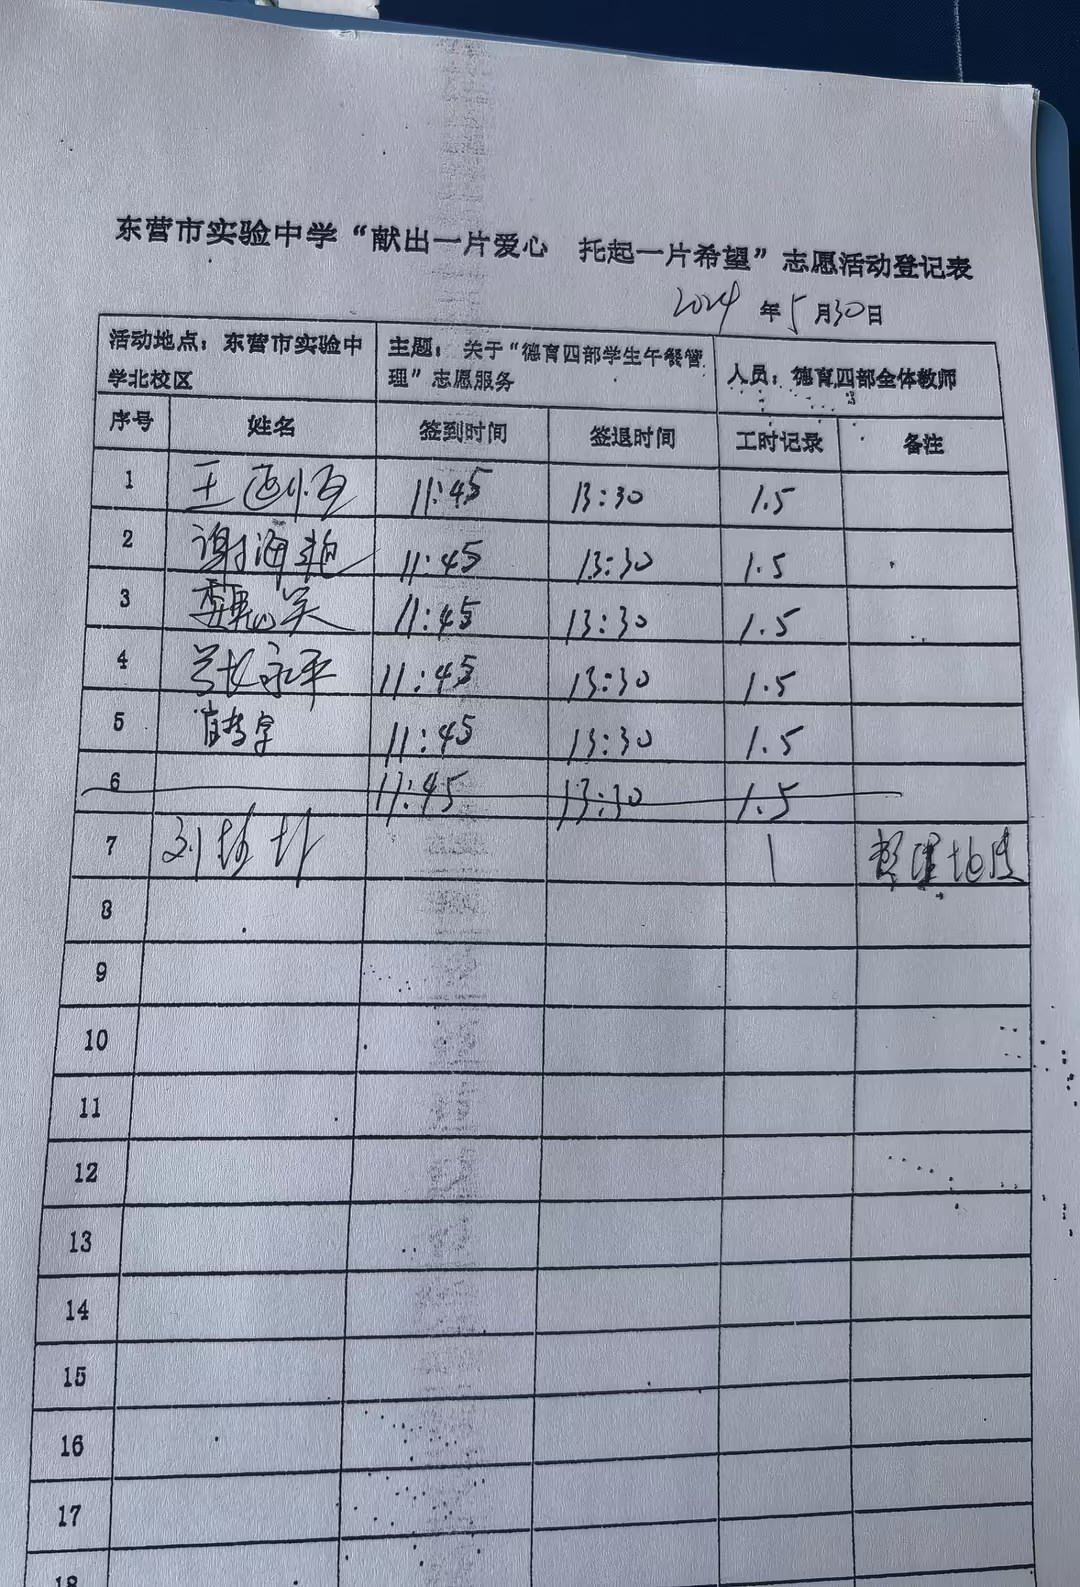 东营市实验中学“献出一片爱心 托起一片希望”志愿活动登记表
2024年5月30日
活动地点：东营市实验中学北校区 主题：关于“德育四部学生午餐管理”志愿服务 人员：德育四部全体教师
序号 姓名 签到时间 签退时间 工时记录 备注
1 王 11:45 13:30 1.5
2 谢海艳 11:45 13:30 1.5
3 魏 11:45 13:30 1.5
4 张永平 11:45 13:30 1.5
5 11:45 13:30 1.5
6 11:45 13:30 1.5
7 刘 1 整理
8
9
10
11
12
13
14
15
16
17
18